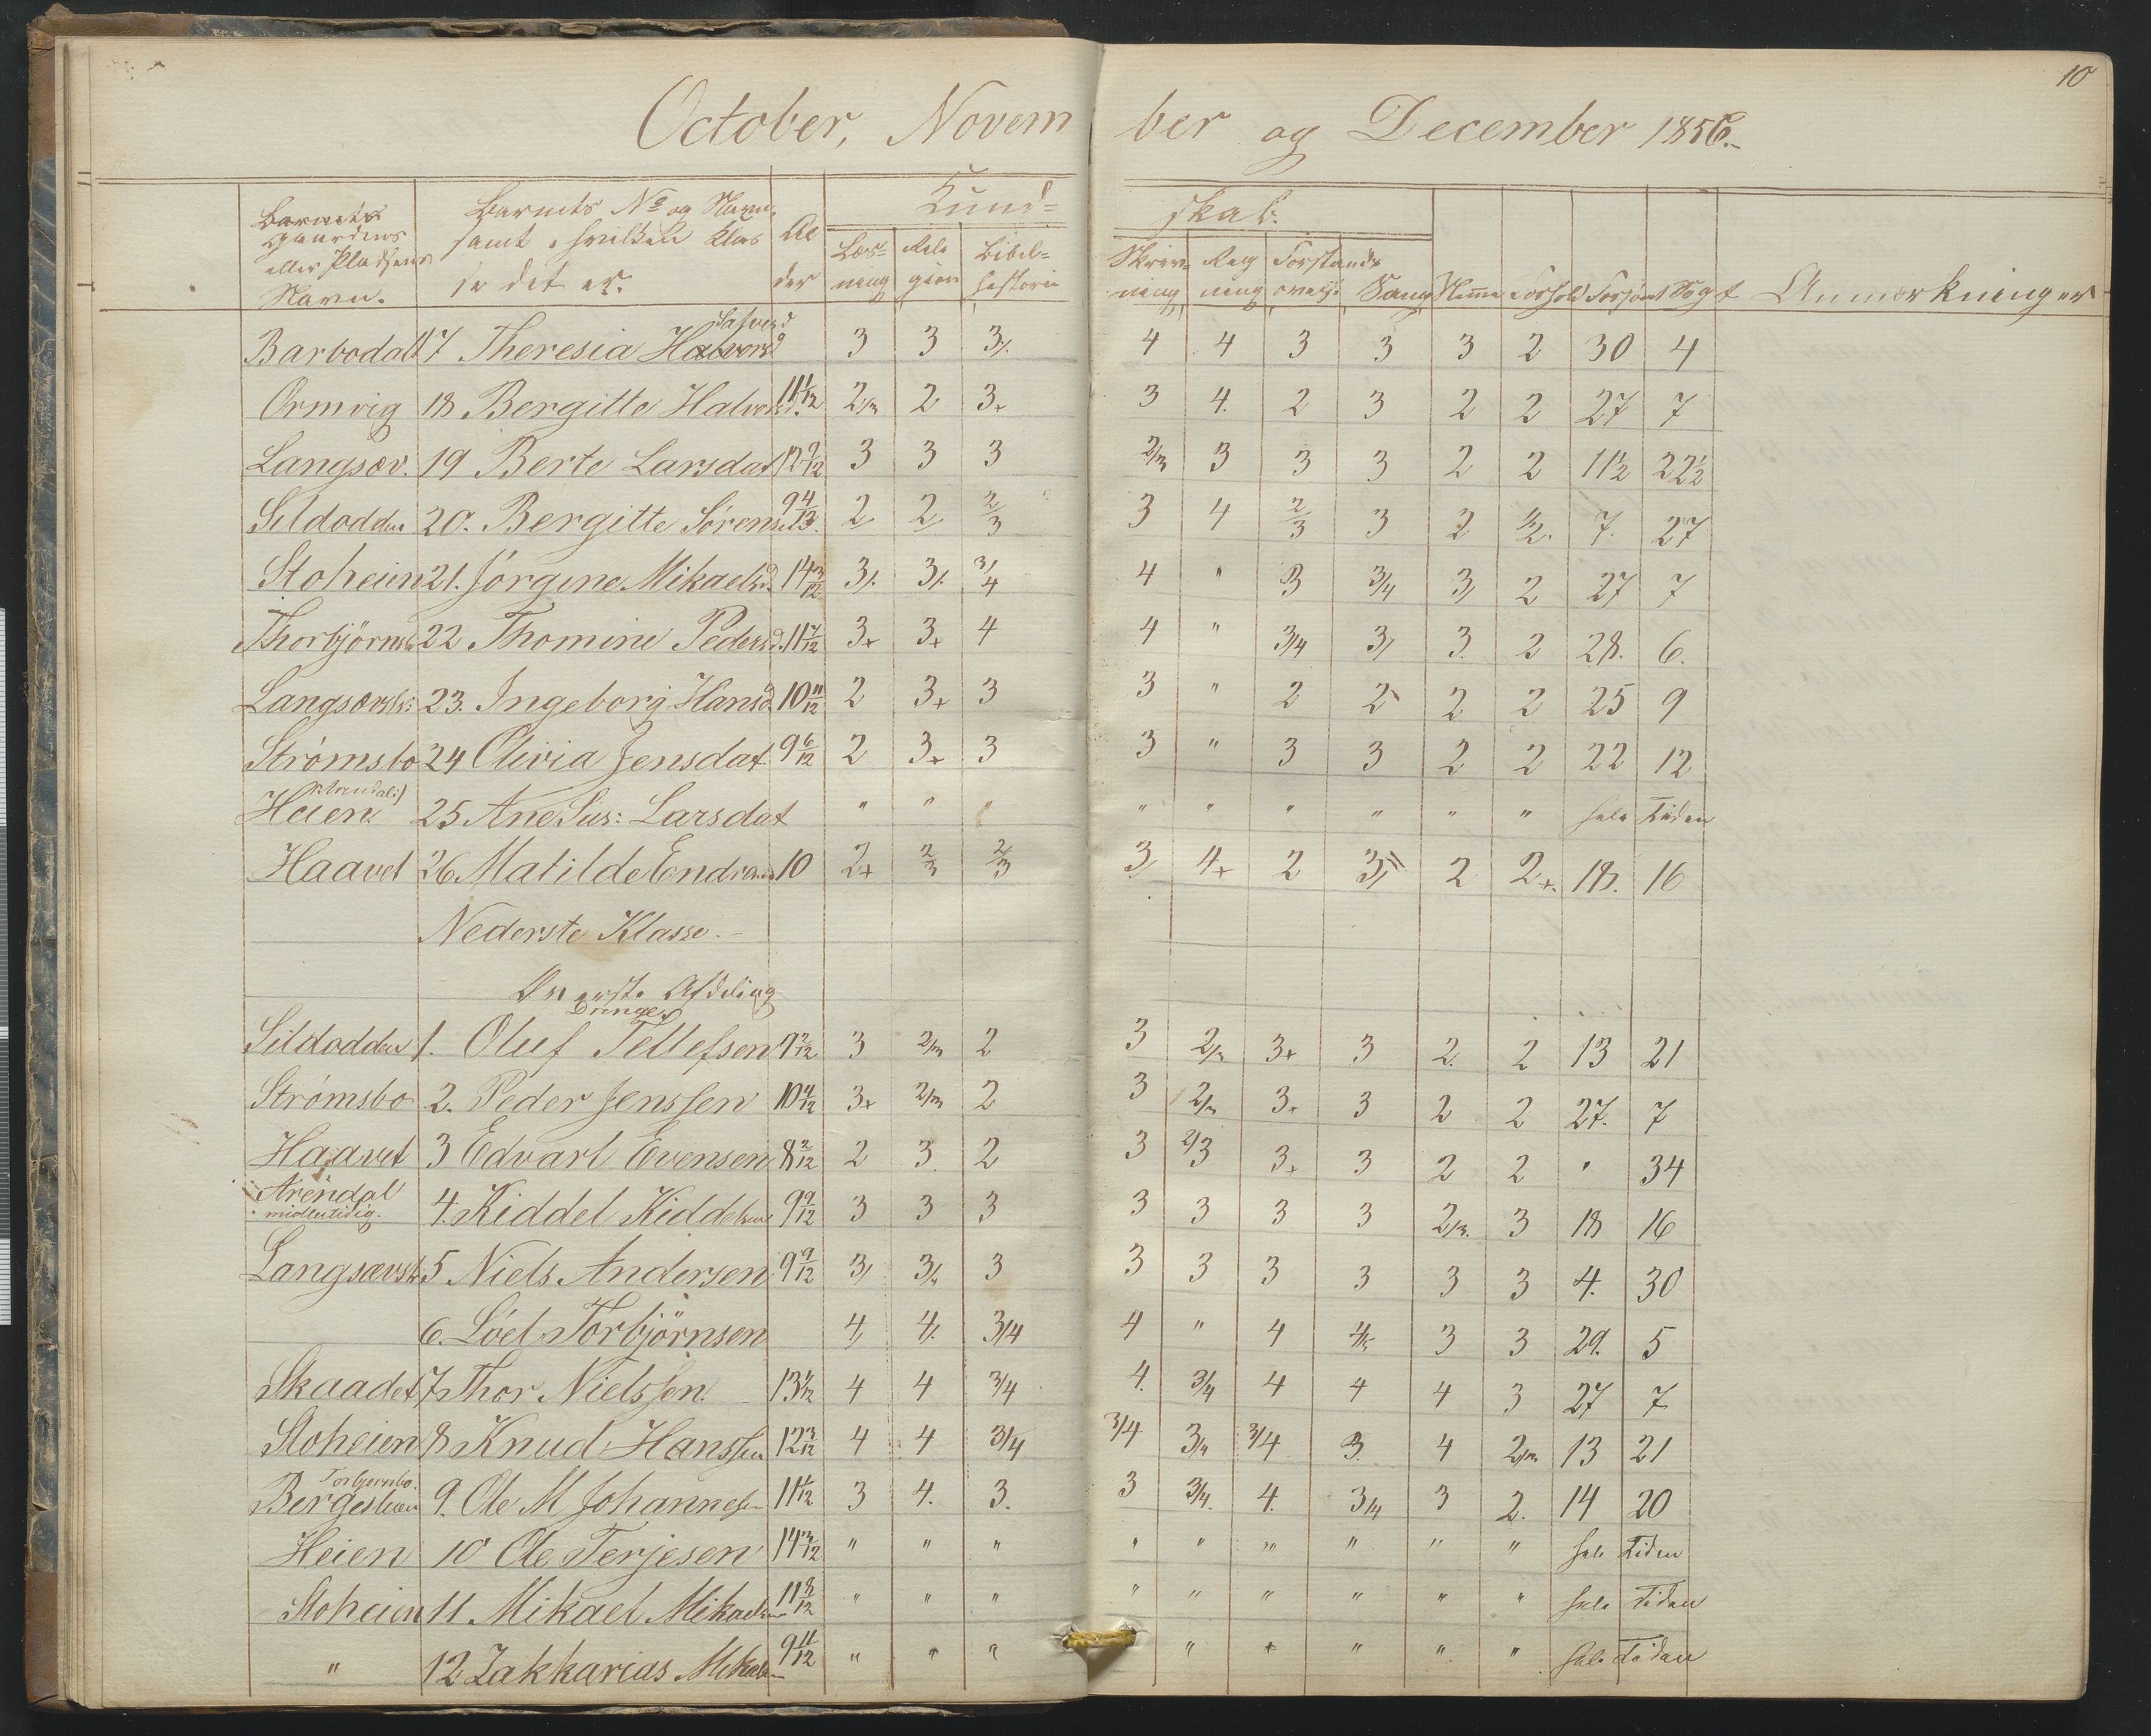 10
October, November og December 1856.
Barnets Gaardens eller Pladsens Navn.
Barnets No og Navn, samt i hvilken Klasse det er.
Alder
Kundskab.
Læsning Religion Bibelhistorie Skrivning Regning Forstandsøvelse Sang Forhold Forsømt Søgt Anmærkninger
Barbodal 17 Theresia Halvorsd 3 3 3/. 4 4 3 3 3 2 30 4
Ormvig 18 Bergitte Halvorsd. 11 1/12 2/3 2 3+ 3 4. 2 3 2 2 27 7
Langsæv. 19 Berte Larsdat 12 9/12 3 3 3 2/3 3 3 3 2 2 11½ 22½
Sildodden 20. Bergitte Sørens 2 2 2/3 3 4 2/3 3 2 ½. 7. 27
Stoheien 21. Jörgine Mikaelsd. 14 3/12 3/. 3/. 3/4 4 " 3 3/4 3/ 2 27 7
Thorbjörnsb 22 Thomine Pedersd. 11 7/12 3+ 3+ 4 4 " 3/4 3/ 3. 2 28. 6.
23. Ingeborg Hansd. 10 11/12 2 3+ 3 3 " 2 2 2 2 25 9
Strømsbo 24 Olivia Jensdat 9 6/12 2 3+ 3 3 " 3 3 2 2 22 12
Heien 25 Ane Sus: Larsdat " " " " " " " " " hele Tiden
Haavet 26 Matilde 10 2+ 2/3 2/3 3/ 4+ 2 3/" 2 2+. 18. 16
Nederste Klasse. -
Øverste Afdeling
Drenge.
Sildodden 1. Oluf Tellefsen 9 2/12 3 2/3 2 3 2/3 3+ 3 2. 2 13 21
Strømsbo 2. Peder Jenssen 10 4/12 3+ 2/3 2 3 2/3 3+ 3 2 2 27. 7
Haavet 3 Edvart Evensen 8 2/12 2 3 2 3 2/3 3+ 3 2 2 " 34
Arendal midlertidig. 4. Kiddel Kiddelsen 9 9/12 3 3 3 3 3 3 3 2/3. 3 18 16
Langsævsb 5 Niels Andersen 9 9/12 3/ 3/4 3 3 3 3 3 3 3 4. 30
6. Löel Torbjörnsen 4/ 4/. 3/4 4 " 4 3 3 29. 5
Skaadet 7 Thor Nielssen. 13 1/12 4 4 3/4 4. 3/4 4 4 4 3 27 7
Stoheien 8 Knud Hanssen 12 3/12 4 4 3/4 3/4 3/4 3/4 3. 4 2/3 13 21
Torbjornbo. Bergeslien 9. Ole M Johannesen 11 1/12 3 4. 3. 3 3/4. 4. 3/4 3 2. 14 20
Heien 10 Ole Terjesen 14 3/12 " " " " " " " " " hele Tiden
Stoheien 11 Mikael Mikaelsen 11 8/12 " " " " " " " " " hele Tiden
" 12 Zakkarias Mikaelsen 9 11/12 " " " " " " " " hele Tiden